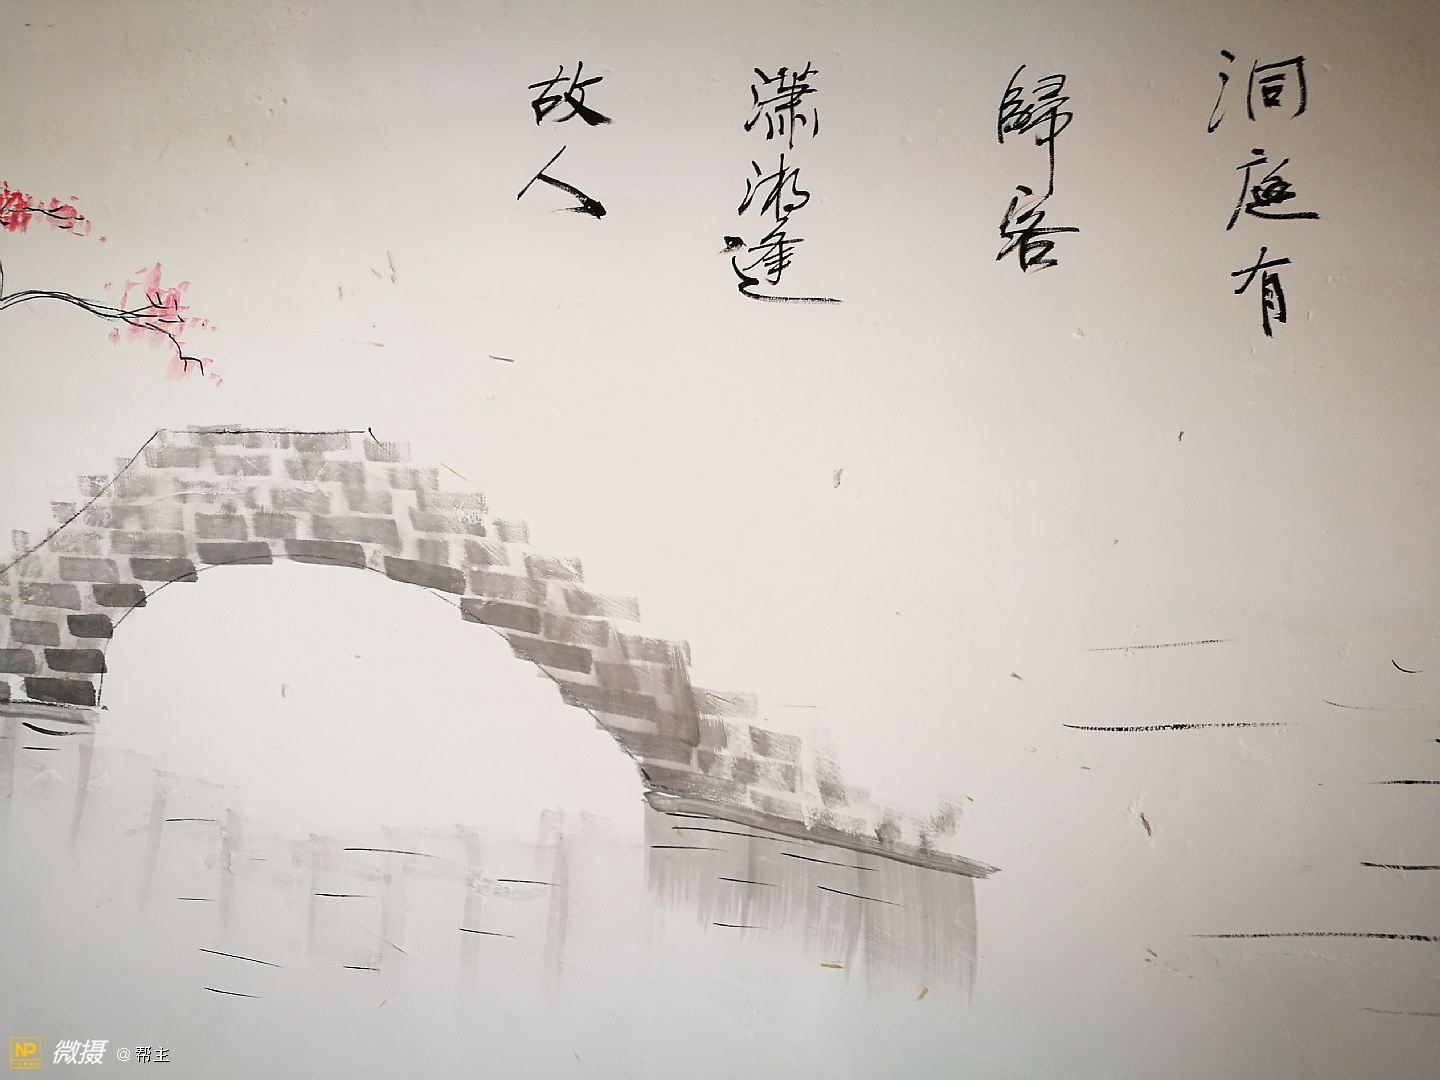 洞庭有
歸客
瀟湘逢
故人
NP 微摄 @帮主